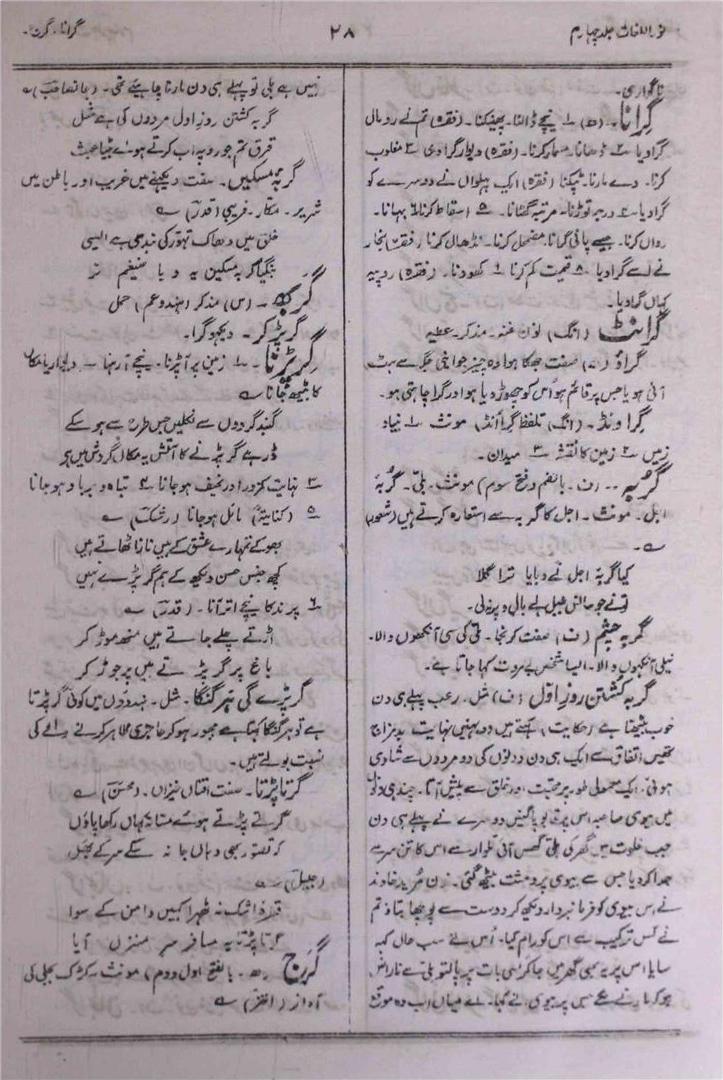 نور اللغات جلد چہارم
۲۸
گرانا۔ گرج۔
ناگواری۔
گرانا۔ (ھ) ۱ نیچے ڈالنا۔ پھینکنا۔ (فقرہ) تم نے رومال
گرادیا ۲ ڈھانا۔ مسمار کرنا۔ (فقرہ) دیوار گرادی ۳ مغلوب
کرنا۔ دے مارنا۔ ٹپکنا (فقرہ) ایک پہلوان نے دوسرے کو
گرادیا ۴ درجہ توڑنا۔ مرتبہ گھٹانا۔ ۵ اسقاط کرنا ۶ بہانا۔
رواں کرنا۔ جیسے پانی گرانا۔ مضمحل کرنا۔ نڈھال کرنا (فقرہ) بخار
نے اسے گرادیا ۸ قیمت کم کرنا ۹ کھودینا۔ (فقرہ) روپیہ
کہاں گرادیا۔
گرانٹ (انگ) نون غنہ۔ مذکر۔ عطیہ
گراؤ (ھ) صفت جھکا ہوا وہ چیز جو اپنی جگہ سے ہٹ
آئی ہو یا جس پر قائم ہو اس کو چھوڑ دیا ہو اور گرا چاہتی ہو۔
گراونڈ۔ (انگ) تلفظ گراؤنڈ) مونث ۱ بنیاد
زمین ۲ زمین کا نقشہ ۳ میدان۔
گربہ۔ (ف۔ بالضم و فتح سوم) مونث۔ بلّی۔ گربۂ
اجل۔ مونث۔ اجل کا گربہ سے استعارہ کرتے ہیں (شعور)
کیا گربۂ اجل نے دبایا ترا گلا
تو نے جو سانس طبل بے بال و پر نہ لی۔
گربہ چشم (ف) صفت کرنجا۔ بلّی کی سی آنکھوں والا۔
نیلی آنکھوں والا۔ ایسا شخص بے مروت کہا جاتا ہے۔
گربہ کشتن روز اول (ف) مثل۔ رعب پہلے ہی دن
خوب بیٹھتا ہے (حکایت) کہتے ہیں دو بہنیں نہایت بد مزاج
تھیں اتفاق سے ایک ہی دن دونوں کی دو مردوں سے شادی
ہوئی۔ ایک معمولی طور پر محبت اور خلق سے پیش آتا۔ چند ہی دنوں
میں بیوی صاحبہ اس پر قابو پاگئیں دوسرے نے پہلے ہی دن
جب خلوت میں گھر کی بلّی گھس آئی تلوار سے اس کا تن سر سے
جدا کردیا جس سے بیوی پر دہشت بیٹھ گئی۔ زن مرید خاوند
نے اس بیوی کو فرمانبردار دیکھ کر دوست سے پوچھا بتاؤ تم
نے کس ترکیب سے اس کو رام کیا۔ اُس نے سب حال کہہ
سنایا اس پر یہ بھی گھر میں جاکر کسی بات پر پالتو بلّی سے ناراض
ہوکر مارنے لگے جس پر بیوی نے کہا۔ اے میاں اب وہ موقع
نہیں ہے بلی تو پہلے ہی دن مارنا چاہیئے تھی۔ (جانصاحب)
گربہ کشتن روز اول مردوں کی ہے مثل
فرق تم جورو پہ اب کرتے ہوئے بیٹا عبث
گربۂ مسکیں۔ صفت دیکھنے میں غریب اور باطن میں
شریر۔ مکار۔ فریبی (قدر)
خلق میں دھاک تہور کی بندھی ہے ایسی
بنگیا گربہ مسکین یہ دیا ضیغم نر
گربھ۔ (س) مذکر (ہندو عم) حمل
گر پڑ کر۔ دیکھو گرا۔
گر پڑنا۔ ۱ زمین پر آپڑنا۔ نیچے آرہنا۔ ۲ دیوار یا مکان
کا بیٹھ جانا
گنبد گردوں سے نکلیں جس طرح سے ہو سکے
ڈر ہے گر پڑنے کا آتش یہ مکاں گردش میں ہے
۳ نہایت کمزور اور نحیف ہو جانا ۴ تباہ و برباد ہو جانا
۵ (کنایۃً) مائل ہوجانا (رشک)
بھوکے تمہارے عشق کے ہیں ناز اٹھاتے ہیں
کچھ جنس حسن دیکھ کے ہم گر پڑے نہیں
۶ پرند کا نیچے اتر آنا۔ (قدر)
اڑتے چلے جاتے ہیں منھ موڑ کر
باغ پر گر پڑتے ہیں پر جوڑ کر
گر پڑے کی ہر گنگا۔ مثل۔ ہندوؤں میں کوئی گر پڑتا
ہے تو ہر گنگا کہتا ہے مجبور ہوکر عاجزی ظاہر کرنے والے کی
نسبت بولتے ہیں۔
گرتا پڑتا۔ صفت افتاں خیزاں۔ (محسن)
گرتے پڑتے ہوئے مستانہ کہاں رکھا پاؤں
کہ تصور بھی وہاں جا نہ سکے سر کے بھل
(جلیل)
قدر اشک۔ ٹھہرا کہیں دامن کے سوا
گرتا پڑتا یہ مسافر سر منزل آیا
گرج۔ ھ۔ بالفتح اول و دوم) مونث۔ کڑک بجلی کی
آواز (اختر)